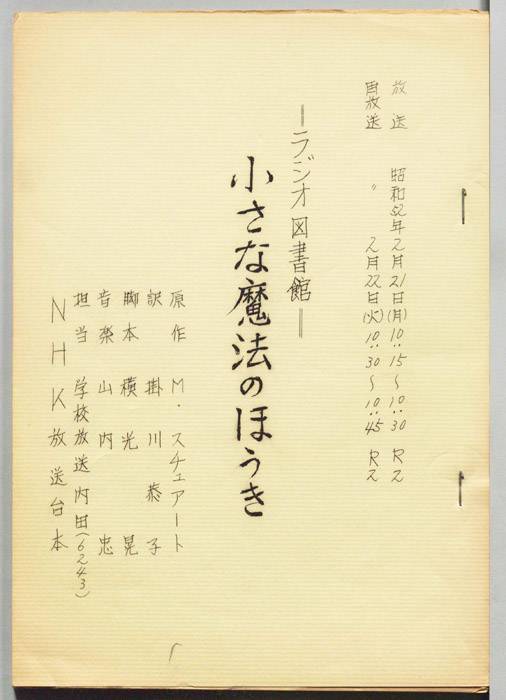 放送 昭和52年2月21日(月)10:15〜10:30 R2
再放送 〃 2月22日(火)10:30〜10:45 R2
―ラジオ図書館―
小さな魔法のほうき
原作 M・スチュアート
訳 掛川恭子
脚本 横光晃
音楽 山内忠
担当 学校放送 内田(6243)
NHK放送台本